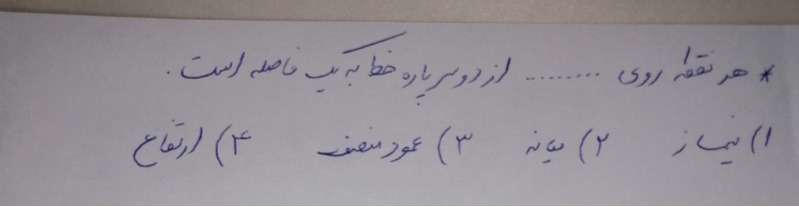 * هر نقطه روی ......... از دو سر پاره خط به یک فاصله است.
۱) نیمساز ۲) میانه ۳) عمود منصف ۴) ارتفاع